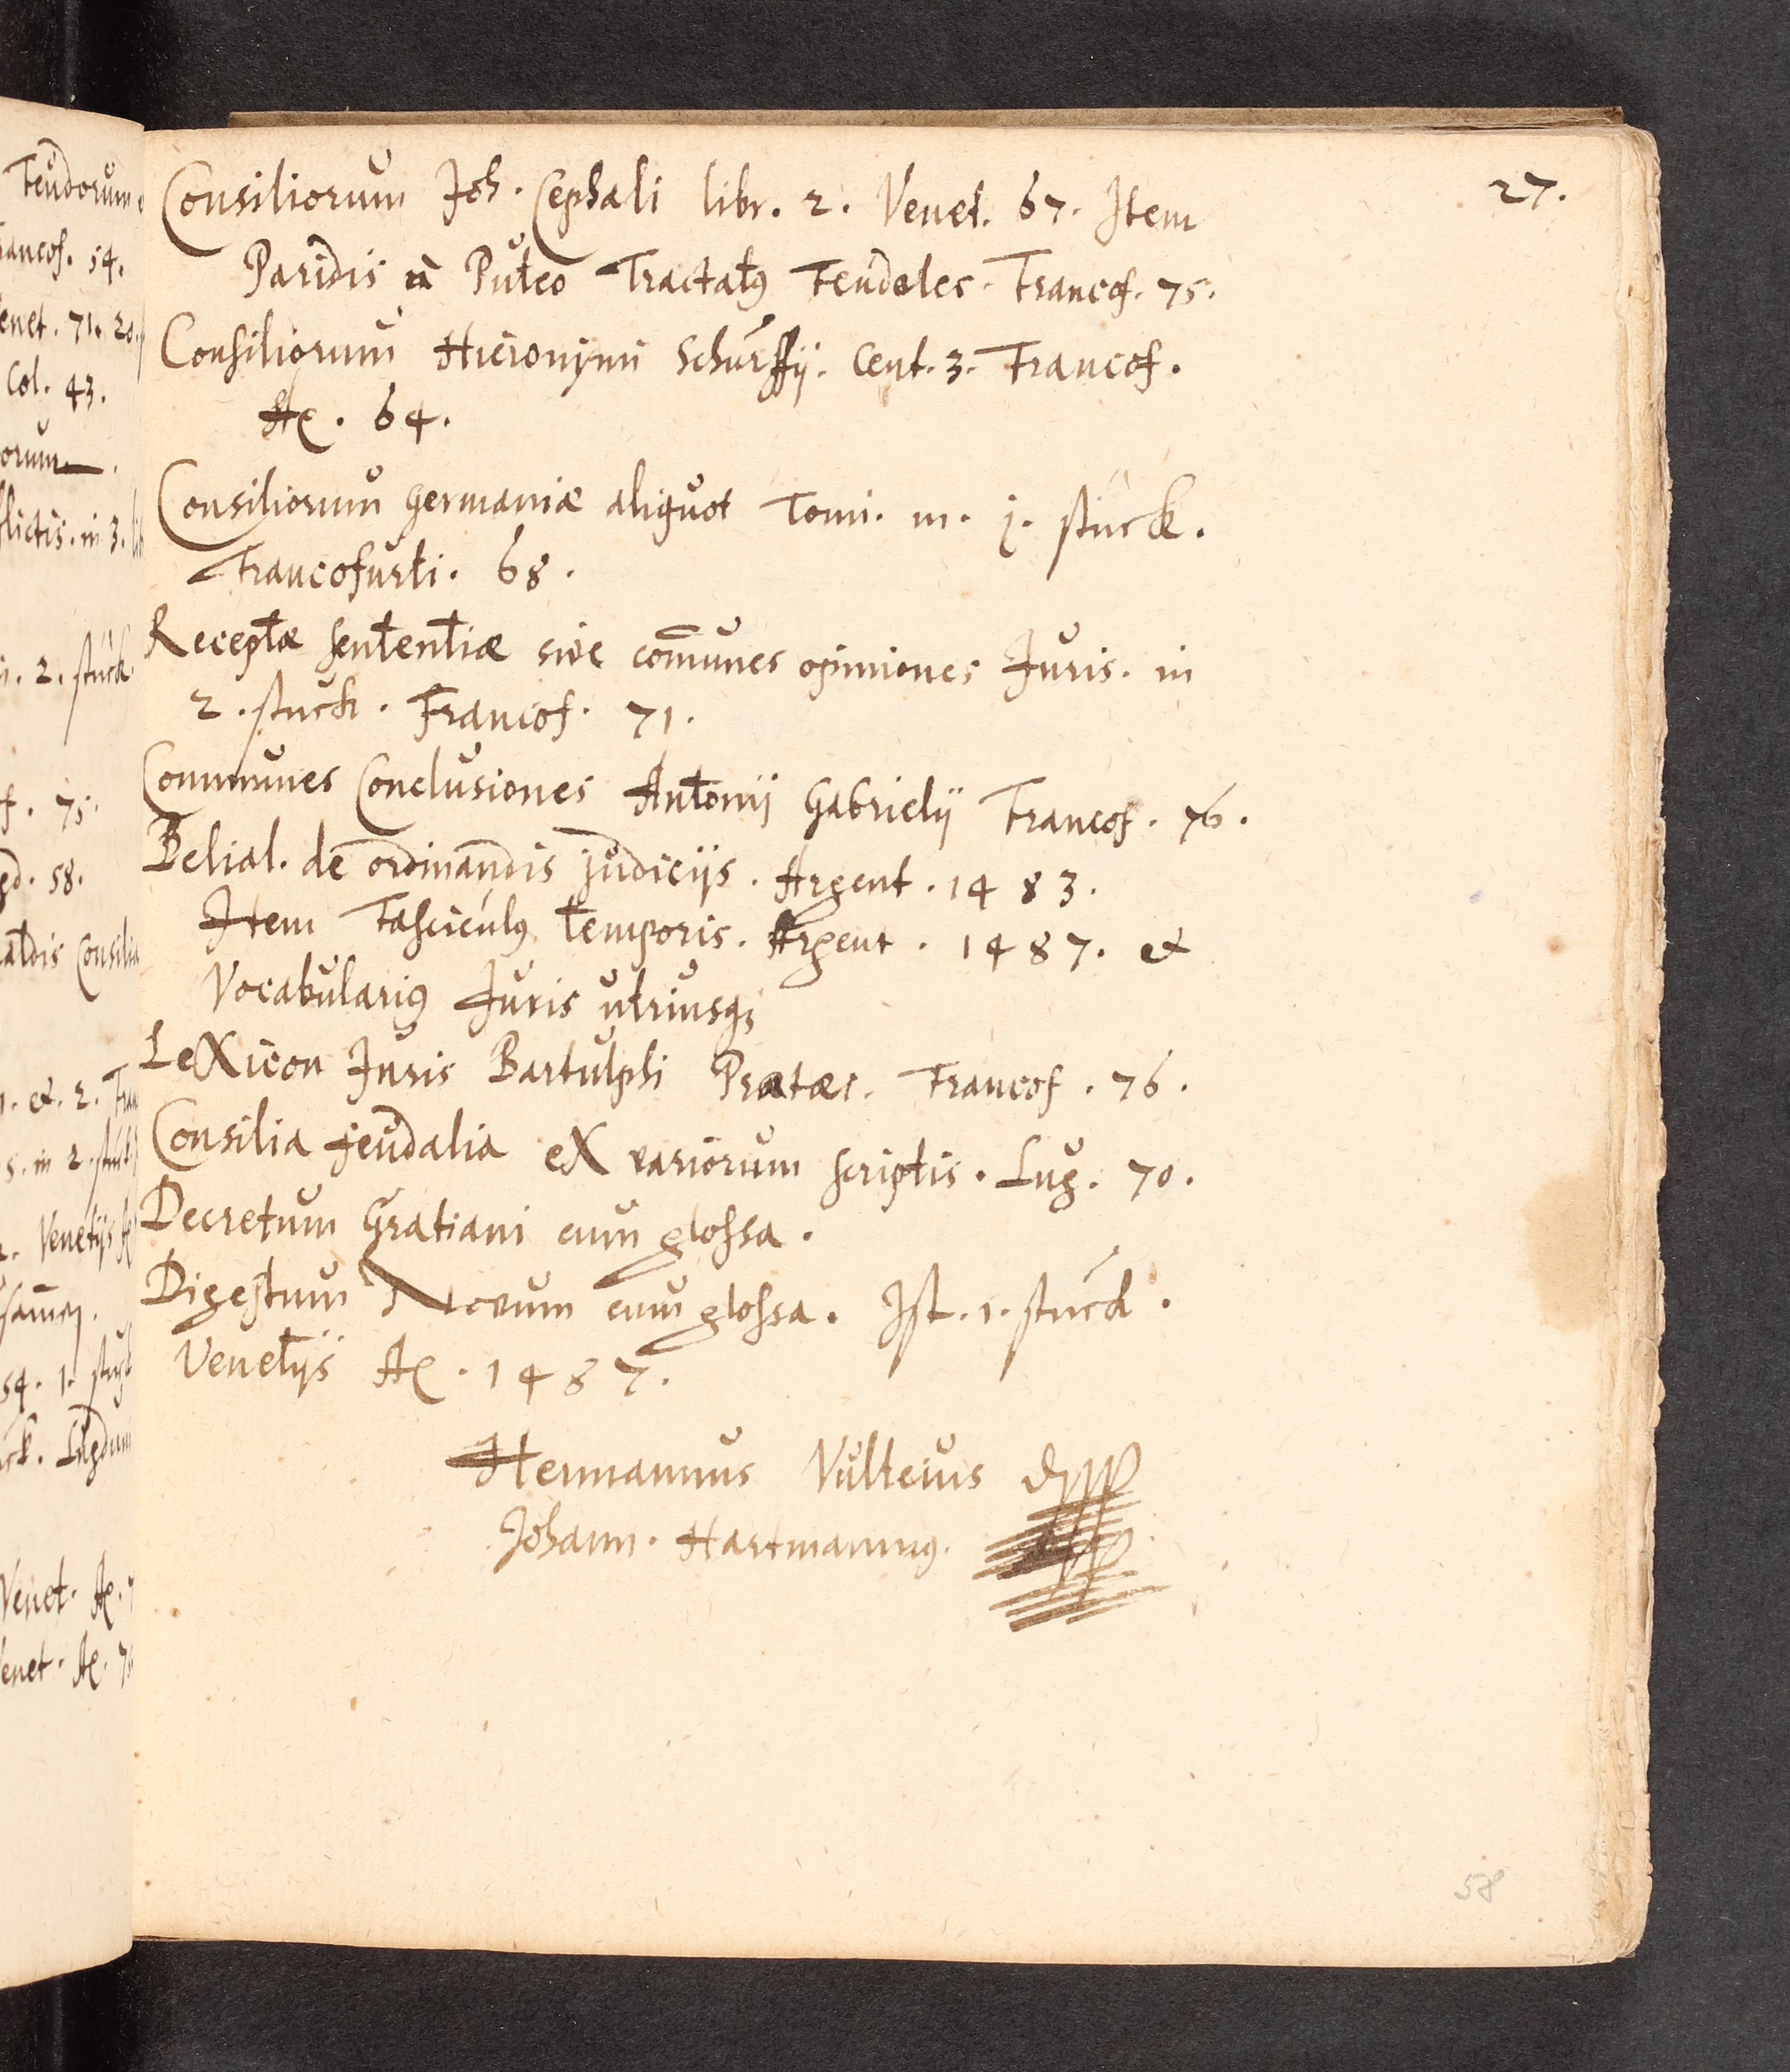 27.
Consiliorum Joh. Cephali libr. 2. Venet. 67. Item
Paridis à Puteo Tractatꝰ Feudales. Francof. 75.
Consiliorum Hieronymi Schurffij. Cent. 3. Francof.
Aº. 64.
Consiliorum Germaniæ aliquot Tomi. in. j. stuck.
Francofurti. 68.
Receptæ sententiæ sive com̄unes opiniones Juris. in
2. stuck. Francof. 71.
Communes Conclusiones Antonij Gabrielij Francof. 76.
Belial. de ordinandis judicijs. Argent. 1483.
Item Fasciculꝰ temporis. Argent. 1487. et
Vocabulariꝰ Juris utriusqꝫ
LeXicon Juris Bartulphi Pratæi. Francof. 76.
Consilia feudalia eX variorum scriptis. Lug. 70.
Decretum Gratiani cum glossa.
Digestum Novum cum glossa. Ist. 1. stuck.
Venetijs Aº. 1487.
Hermannus Vulteius
Johann. Hartmannꝰ.
58
Feudorum
rancof. 54.
enet. 71. 20.
Col. 43.
orum.
flictis. in 3. lib
2. stuck
f. 75.
gd. 58.
aldis Consilia
1. et. 2. Fran
5. in 2. stuck
Venetijs A
54. 1. stuck
ck. Lugduni
Venet. Aº. 7
enet. Aº. 75